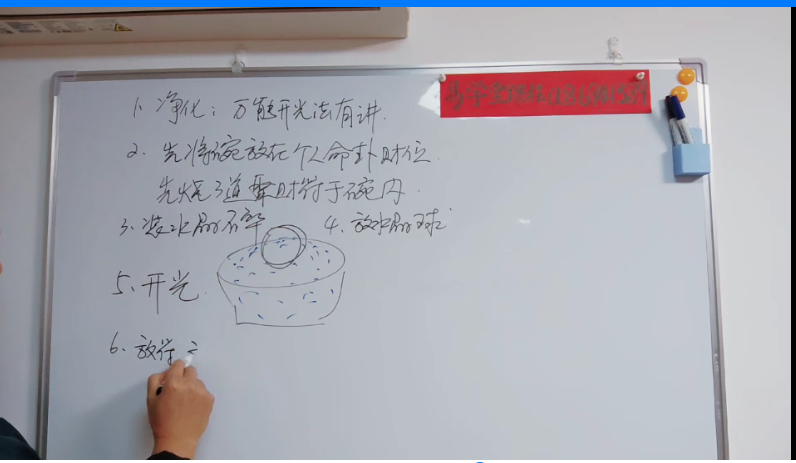 1、净化：万能开光法有讲.
2、先将碗放在个人命卦财位.
先烧3道聚财符于碗内.
3、装水晶石碎 4、放水晶球
5、开光.
6、放符